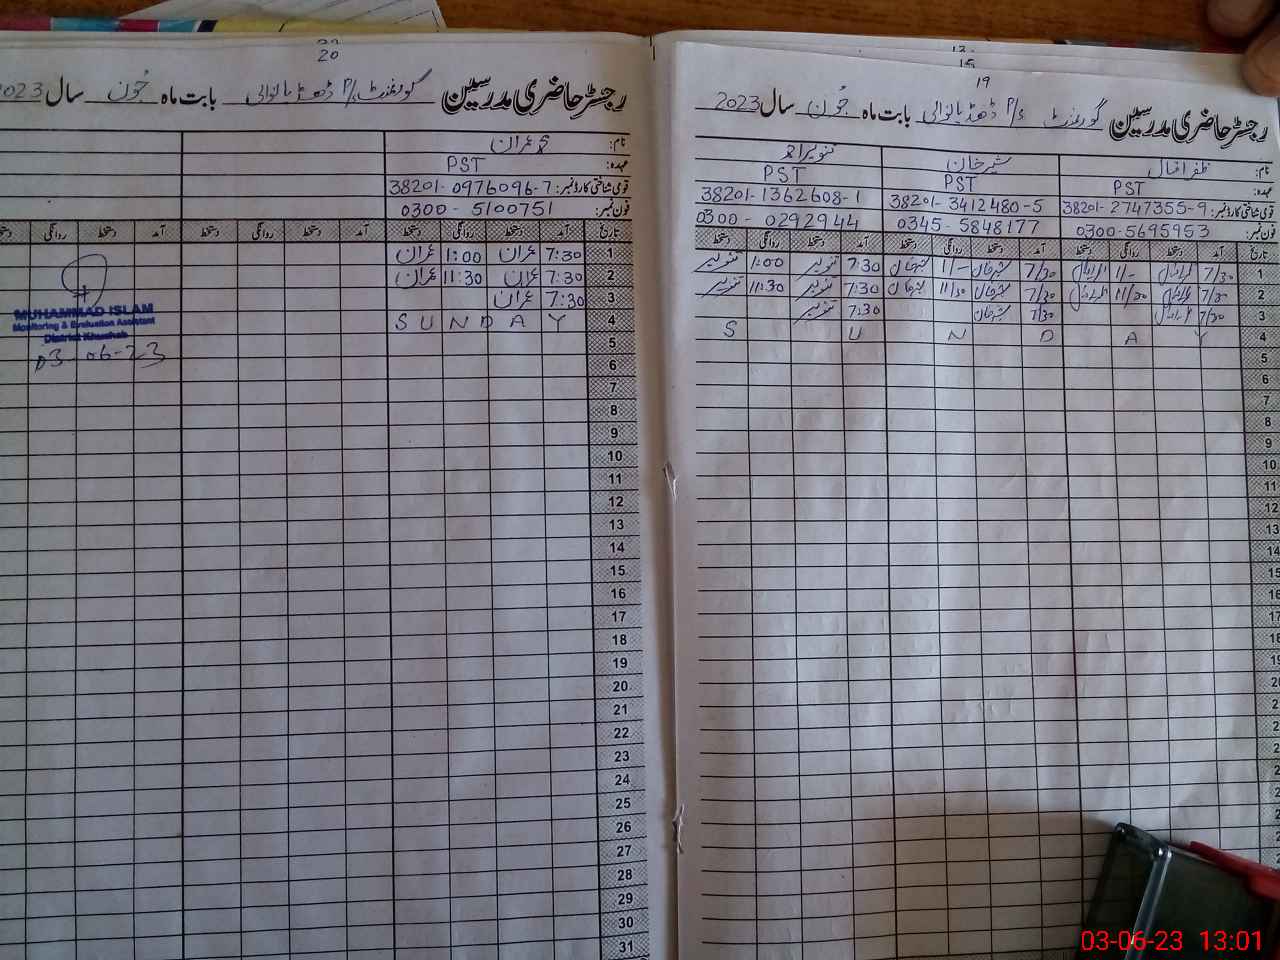 19
رجسٹر حاضری مدرسین گورنمنٹ P/s ڈھڈیانوالی بابت ماہ جُون سال 2023
نام: ظفر اقبال شیر خان تنویر احمد
عہدہ: PST PST PST
قومی شناختی کارڈ نمبر: 38201-2747355-9 38201-3412480-5 38201-1362608-1
فون نمبر: 0300-5695953 0345-5848177 0300-0292944
تاریخ آمد دستخط روانگی دستخط آمد دستخط روانگی دستخط آمد دستخط روانگی دستخط
1 7/30 11/- 7/30 شیر خان 11/- شیر خان 7:30 تنویر 1:00 تنویر
2 7/30 11/30 7/30 شیر خان 11/30 شیر خان 7:30 تنویر 11:30 تنویر
3 7/30 7/30 شیر خان 7:30 تنویر
4 S U N D A Y
5
6
7
8
9
10
11
12
13
14
15
16
17
18
19
20
21
22
23
24
20
رجسٹر حاضری مدرسین گورنمنٹ P/s ڈھڈیانوالی بابت ماہ جُون سال 2023
نام: محمد عمران
عہدہ: PST
قومی شناختی کارڈ نمبر: 38201-0976096-7
فون نمبر: 0300-5100751
تاریخ آمد دستخط روانگی دستخط آمد دستخط روانگی دستخط آمد دستخط روانگی
1 7:30 عمران 1:00 عمران
2 7:30 عمران 11:30 عمران
3 7:30 عمران
4 S U N D A Y
5
6
7
8
9
10
11
12
13
14
15
16
17
18
19
20
21
22
23
24
25
26
27
28
29
30
31
MUHAMMAD ISLAM
Monitoring & Evaluation Assistant
District Khushab
03-06-23
03-06-23 13:01